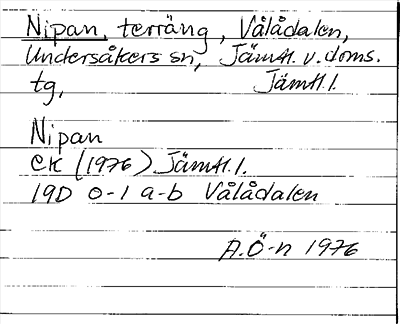 Nipan, terräng, Vålådalen,
Undersåkers sn, Jämtl. v. doms.
tg, Jämtl. l.
Nipan
EK (1976) Jämtl. l.
19D 0-1 a-b Vålådalen
A.Ö-n 1976